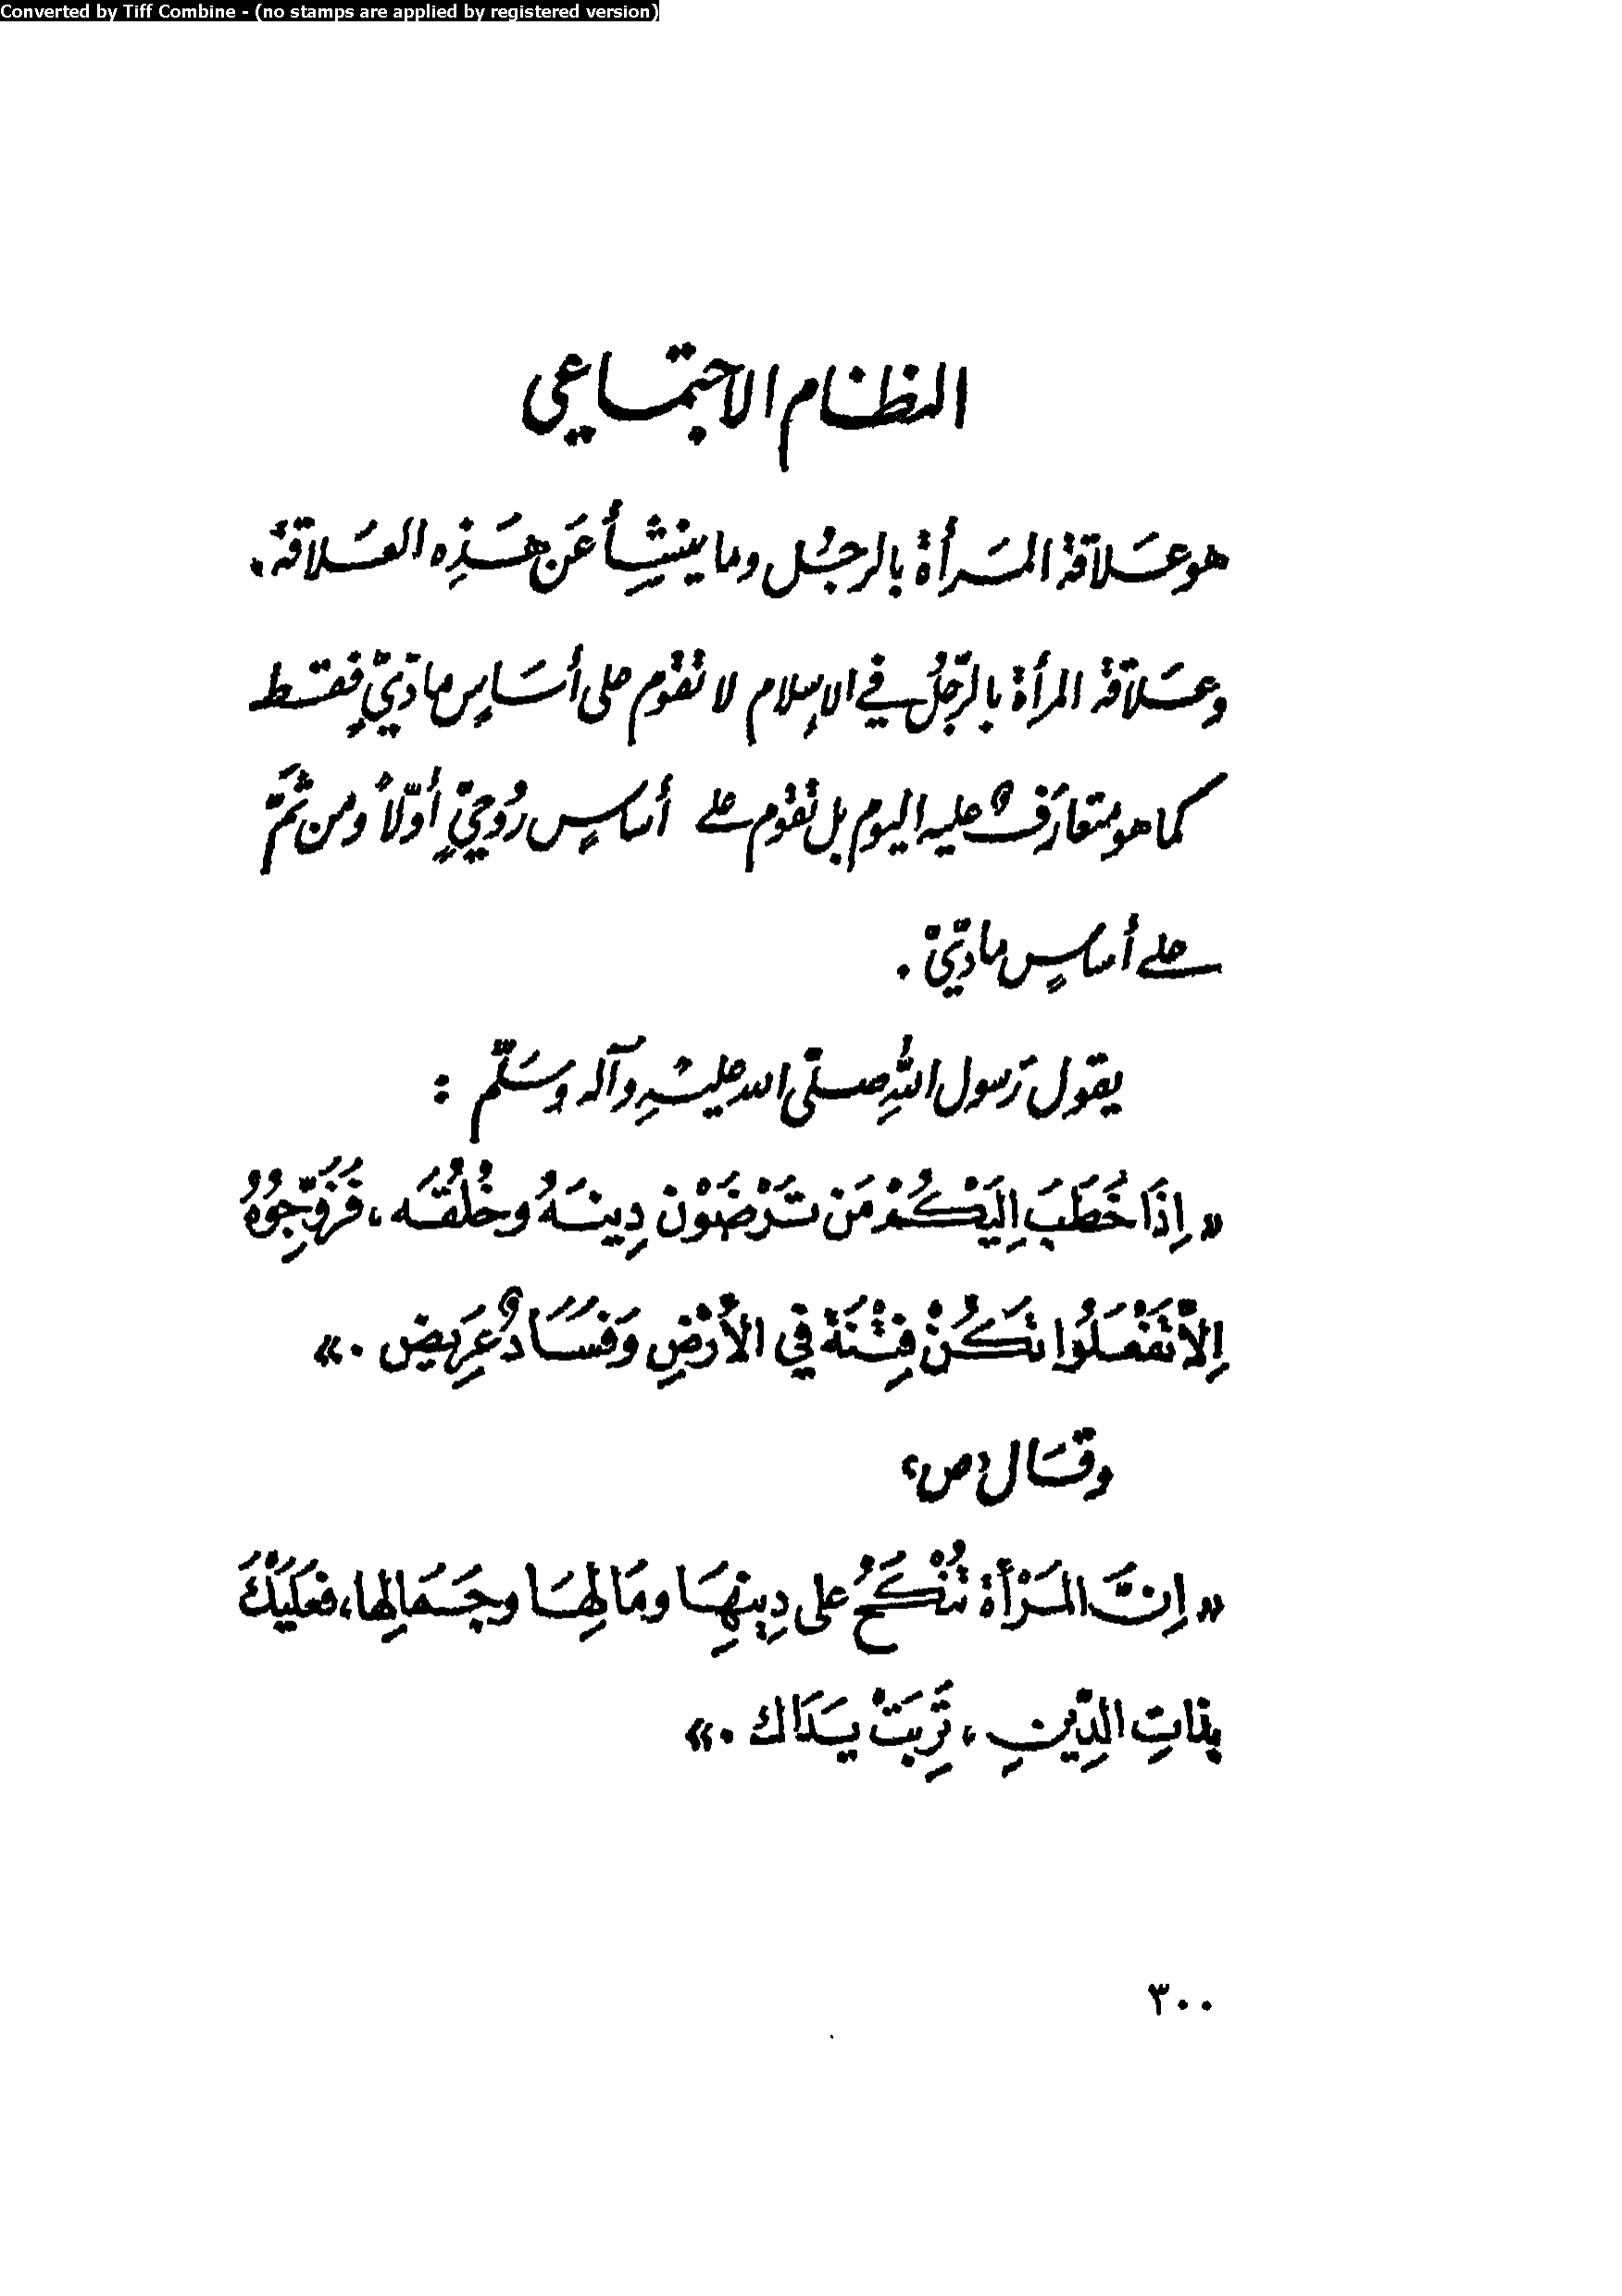 Converted by Tiff Combine - (no stamps are applied by registered version)
النظام الاجتماعي
هو عَلاقةُ المَرأة بالرجُل وما ينشأ عَن هَذِه العَلاقة.
وعَلاقةُ المرأة بالرّجُل في الإسلام لا تقُوم على أسَاسٍ مادّيٍّ فقط
كما هو متعارَفٌ عليه اليوم بل تقُوم على أساسٍ رُوحيٍّ أوّلاً ومن ثَمَّ
على أساسٍ مادّيّ .
يقول رَسول اللهِ صلّى الله عليْهِ وآله وسَلّم :
« إذَا خَطَبَ إلَيْكُمْ مَن تَرْضَوْن دِينَهُ وخُلُقَه ، فَزَوِّجُوهُ
إلاّ تَفْعَلُوا تَكُنْ فِتْنَة في الأرْضِ وَفَسَادٌ عَرِيض . »
وقَال «ص»
« إنَّ المَرْأة تُنْكَحُ على دِينِهَا ومَالِهَا وجَمَالِها، فعَلَيْكَ
بِذاتِ الدِّينِ ، تَرِبَتْ يَدَاك . »
٣٠٠